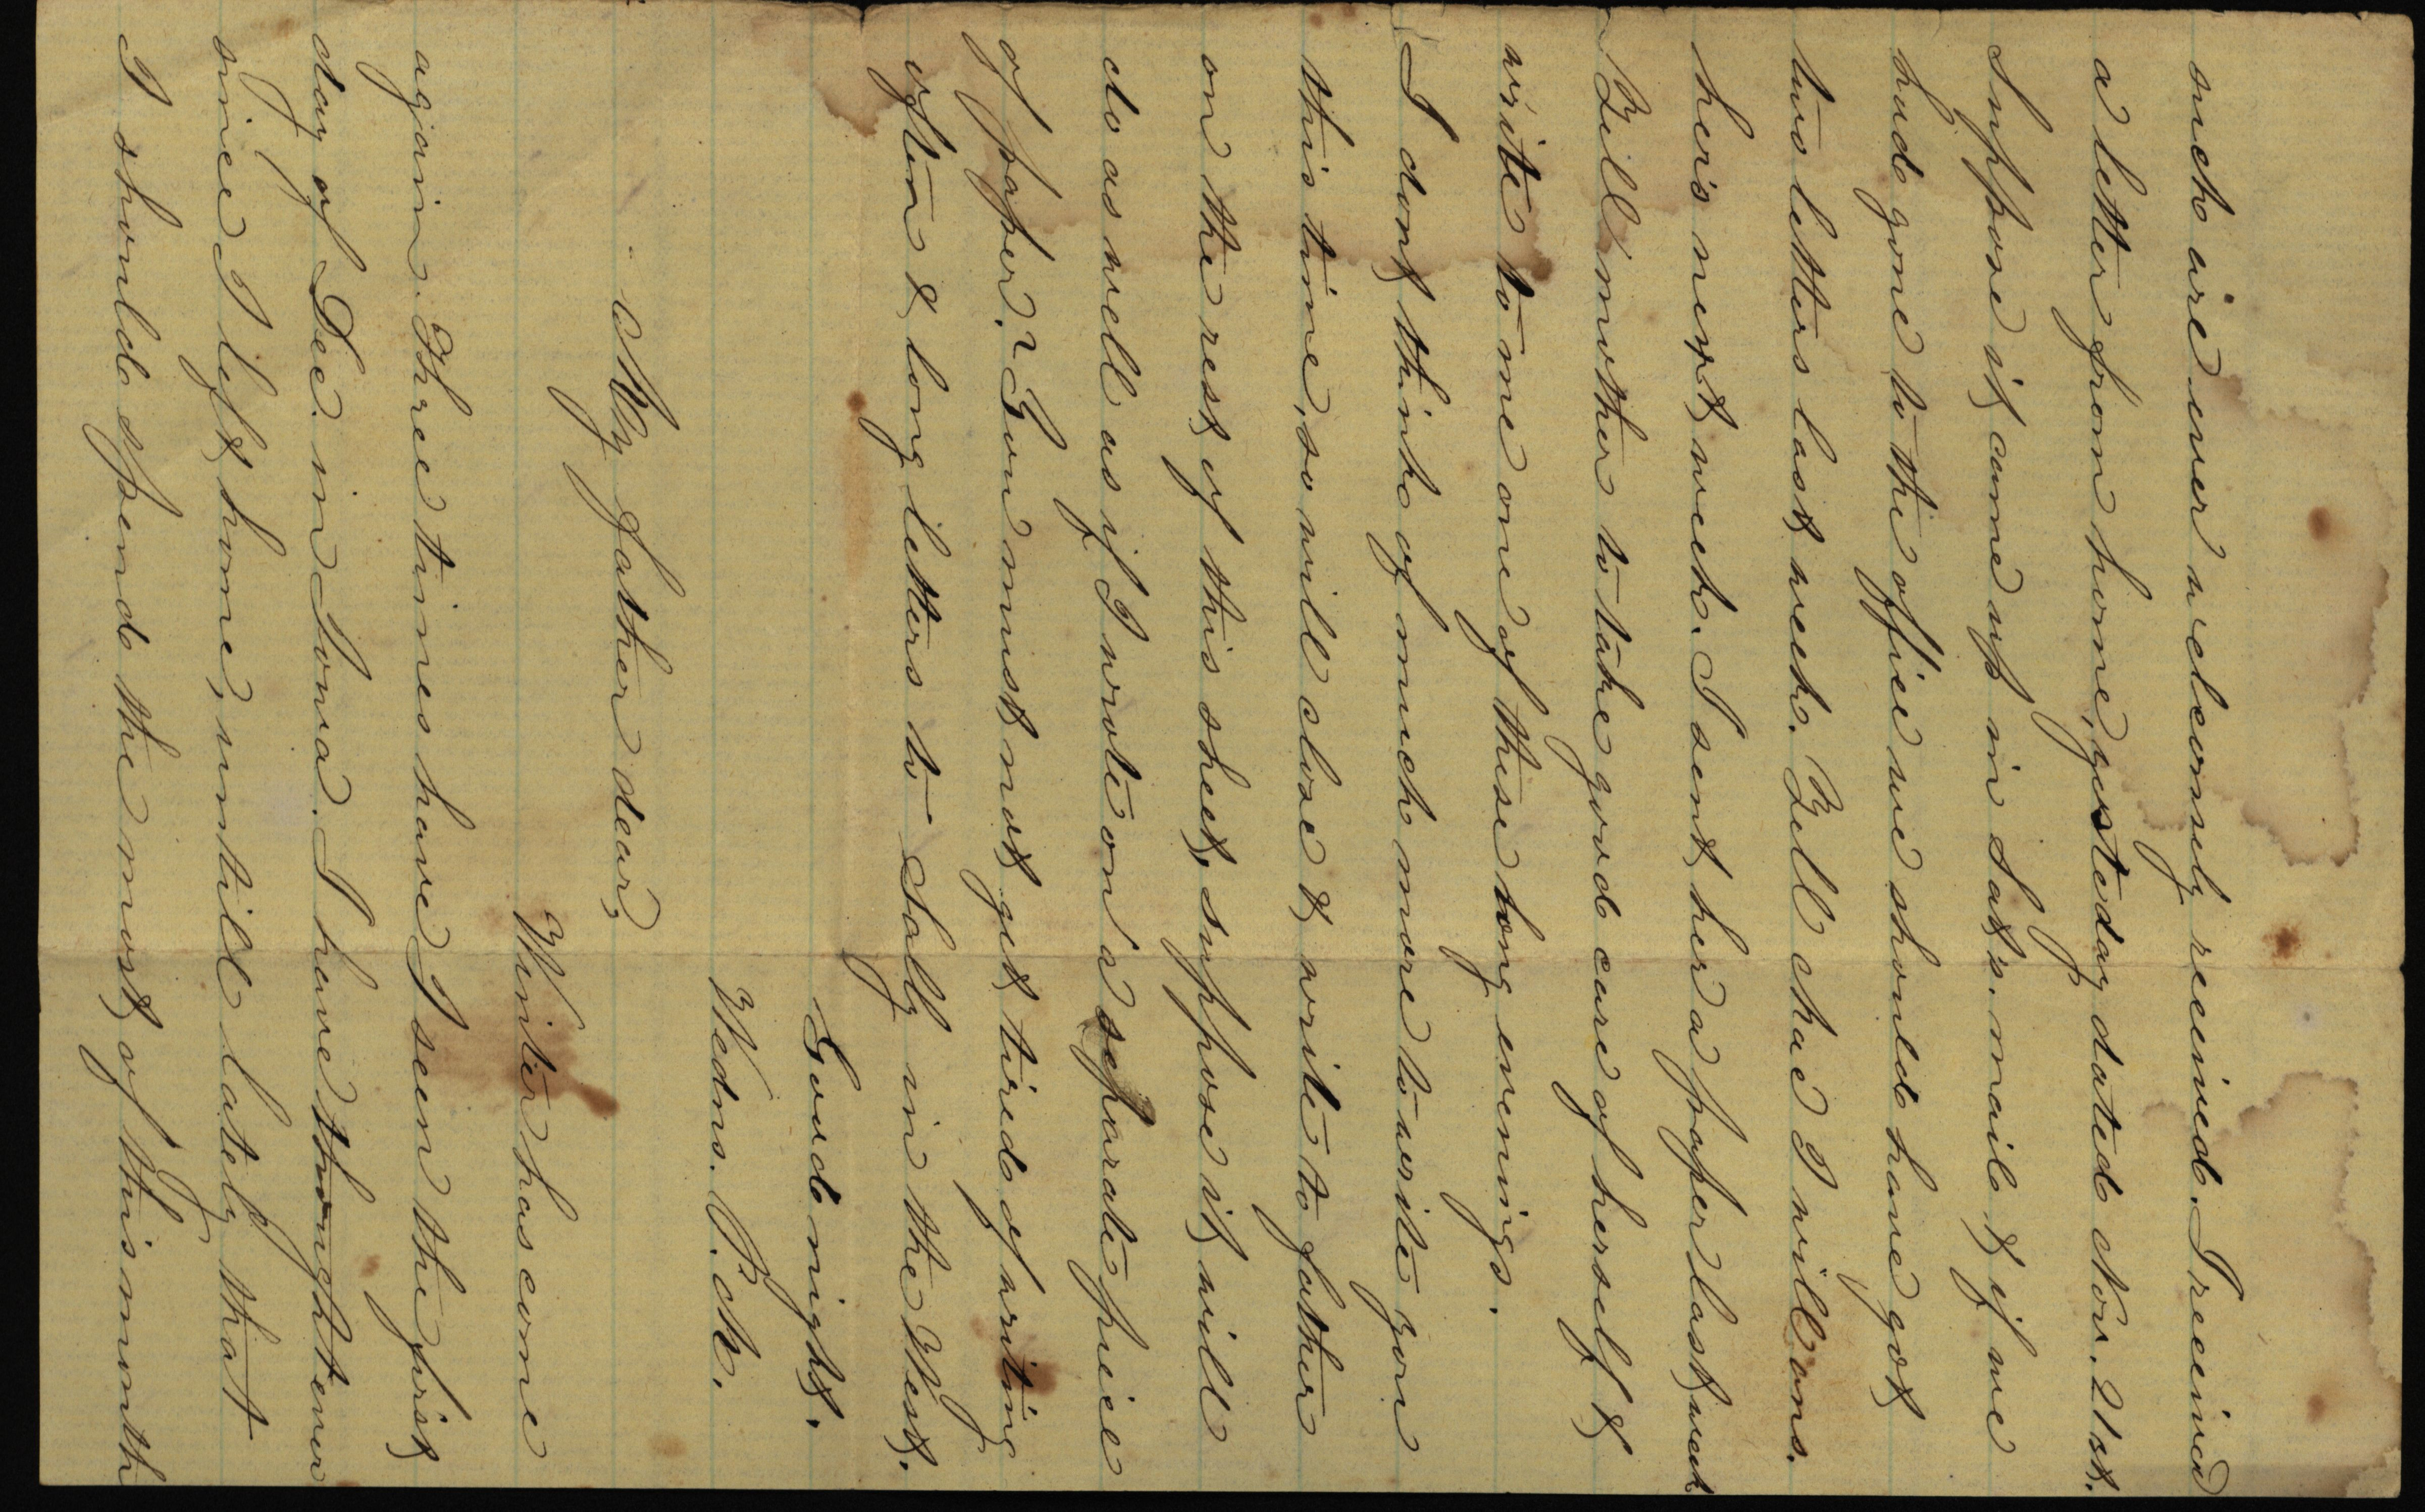 such are ever welcomely received. I received
a letter from home, yesterday dated Nov. 21st.
Suppose it came up in Sat's. mail & if we
had gone to the office we should have got
two letters last week. Tell Chac I will ans.
her's next week. I sent her a paper last week
Tell mother to take good care of herself &
write to me one of these long evenings.
I dont think of much more to write you
this time, so will close & write to father
on the rest of this sheet, suppose it will
do as well as if I wrote on a separate piece
of paper.? You must not get tired of writing
often & long letters to Sally in the West.
Good night.
Wedns. P. M.
My father dear,
Winter has come
again. Three times have I seen the first
day of Dec. in Iowa. I have thought ever
since I left home, untill lately that
I should spend the most of this month